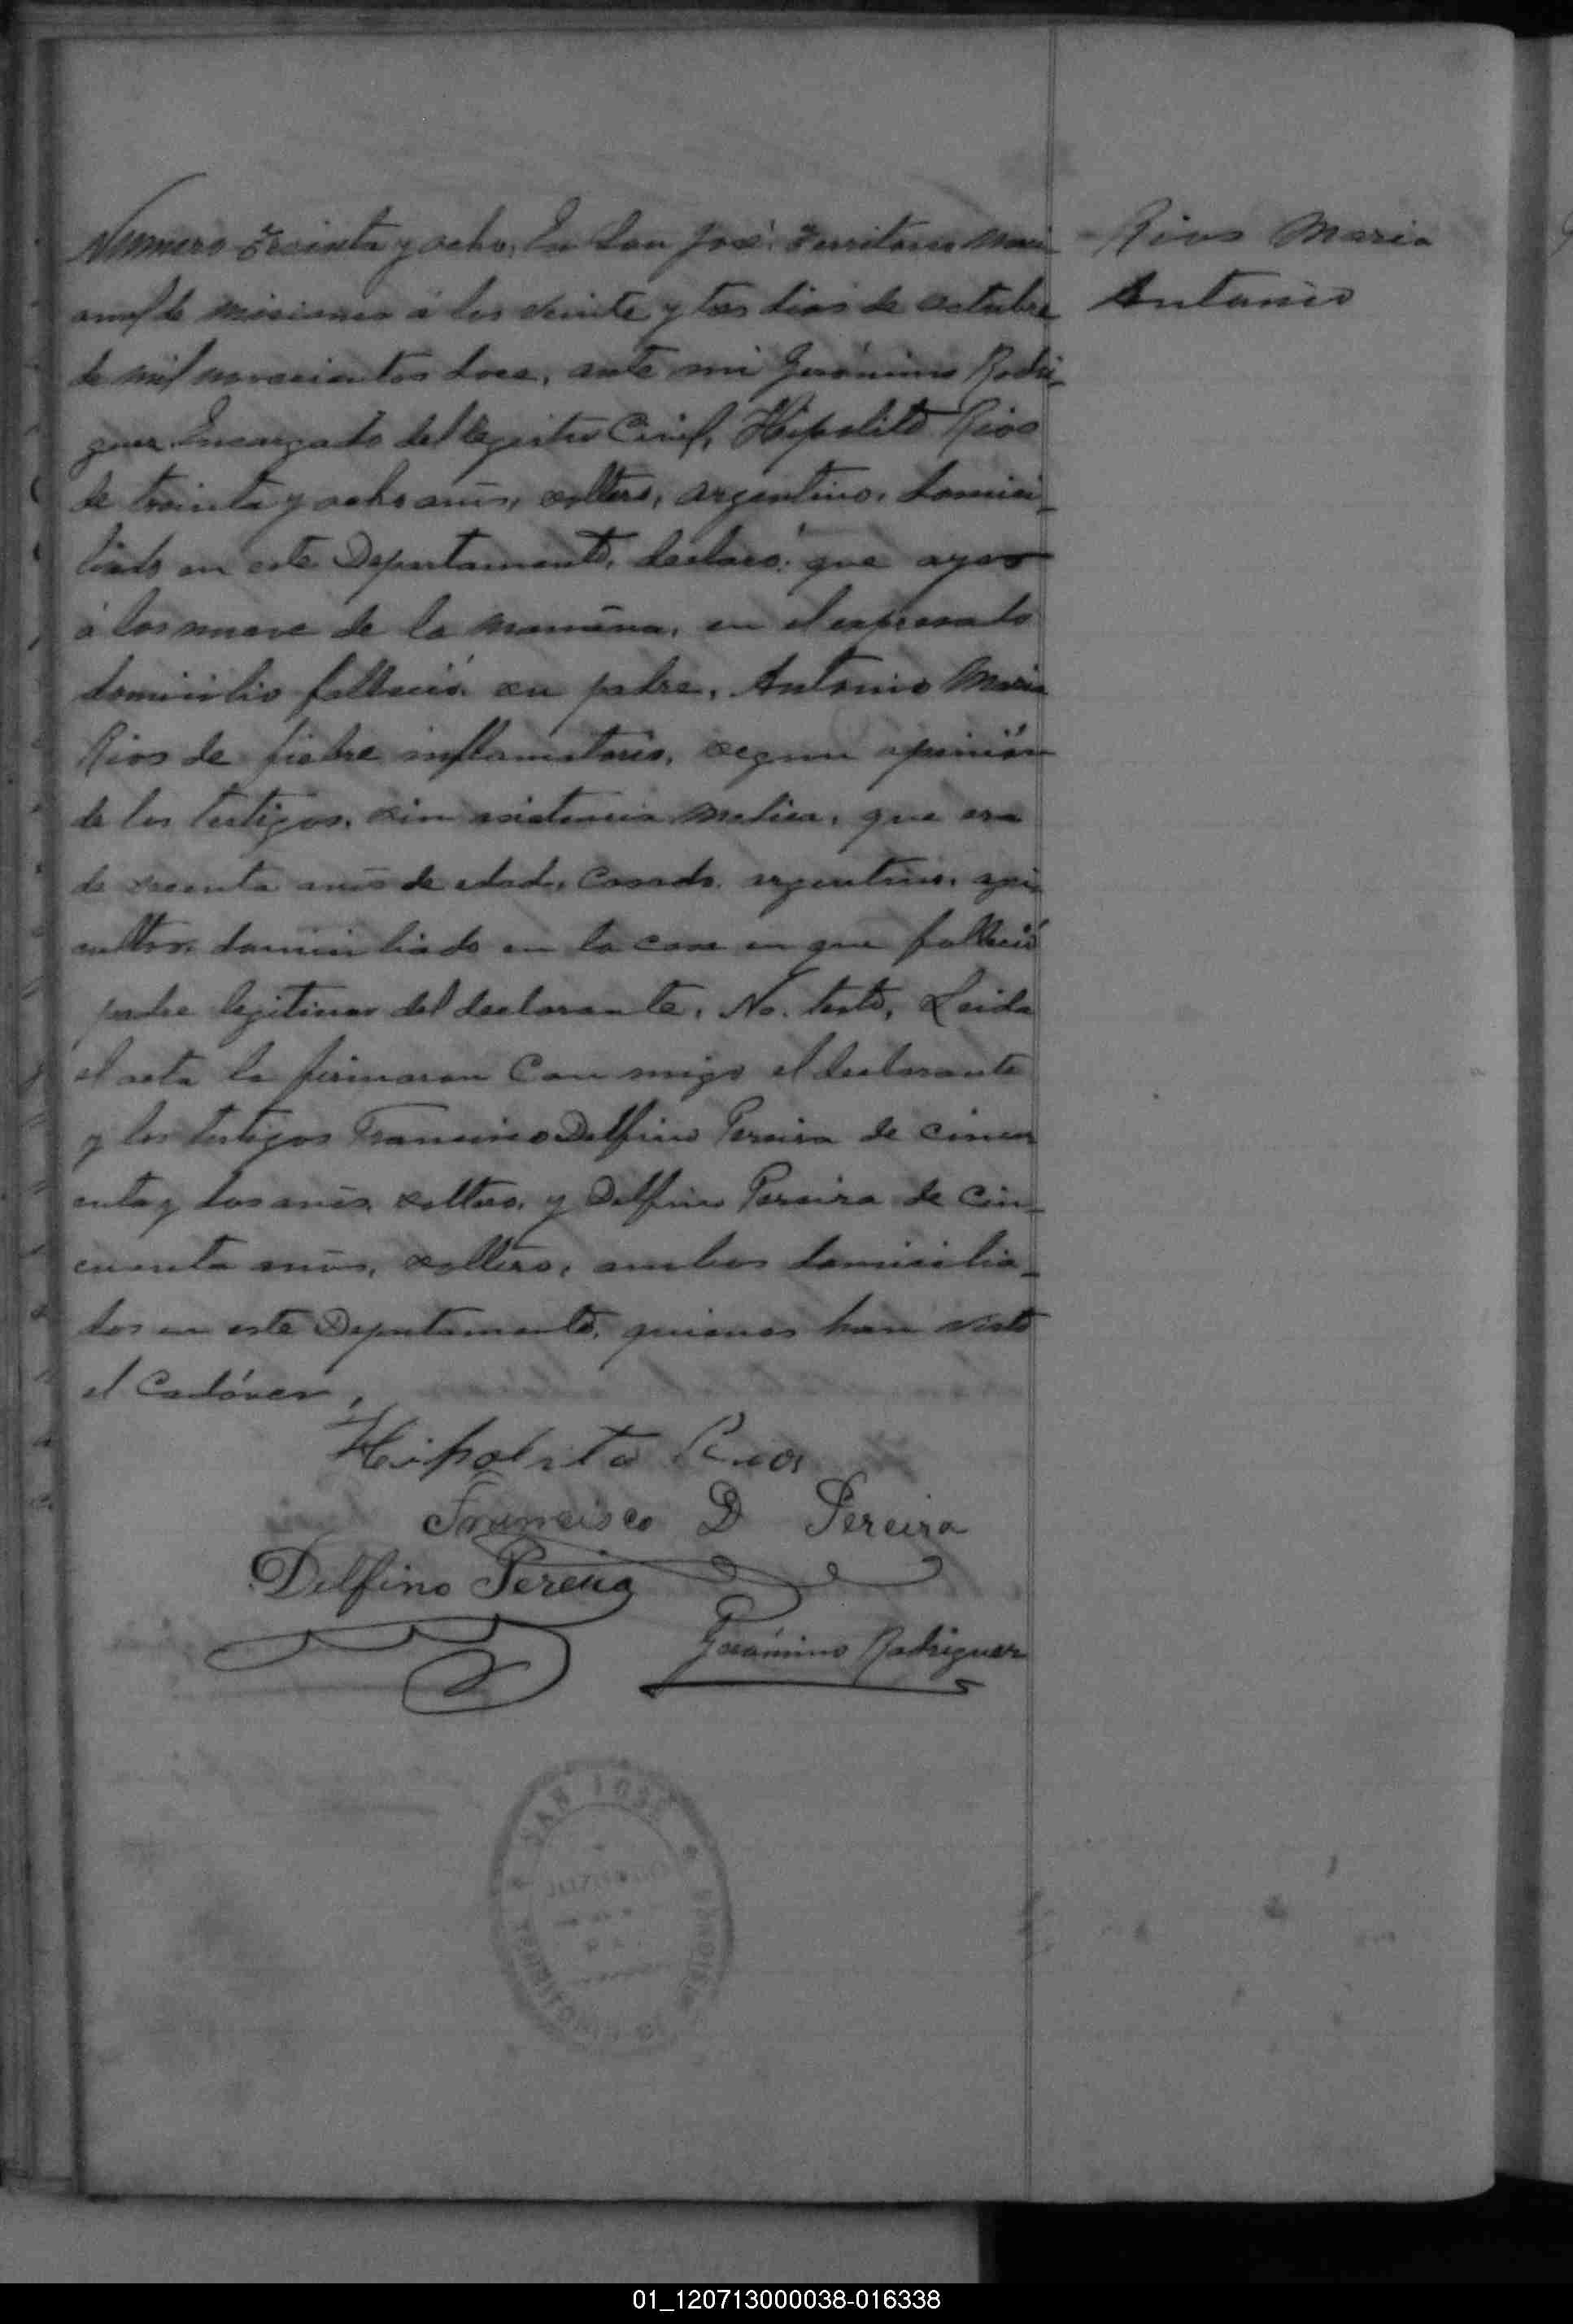 Numero Treinta y ocho, En San José, Territorio Naci
onal de Misiones á los veinte y tres dias de Octubre
de mil novecientos doce, ante mi Gerónimo Rodri-
guez Encargado del Registro Civil, Hipolito Rios
de treinta y ocho años, soltero, argentino, domici-
liado en este Departamento, declaró: que ayer
á las nueve de la mañana, en el expresado
domicilio falleció su padre, Antonio Maria
Rios de fiebre inflamatoria, segun opinión
de los testigos, sin asistencia medica, que era
de sesenta años de edad, casado, argentino, agri
cultor, domiciliado en la casa en que falleció
padre legitimo del declarante, No testó, Leida
el acta la firmaron con migo el declarante
y los testigos Francisco Delfino Pereira de cincu
enta y dos años, soltero, y Delfino Pereira de cin-
cuenta años, soltero, ambos domicilia-
dos en este Departamento, quienes han visto
el Cadáver,
Rios Maria
Antonio
Hipolito Rios
Francisco D Pereira
Delfino Pereira
Gerónimo Rodriguez
SAN JOSÉ
TERRITORIO
01_120713000038-016338